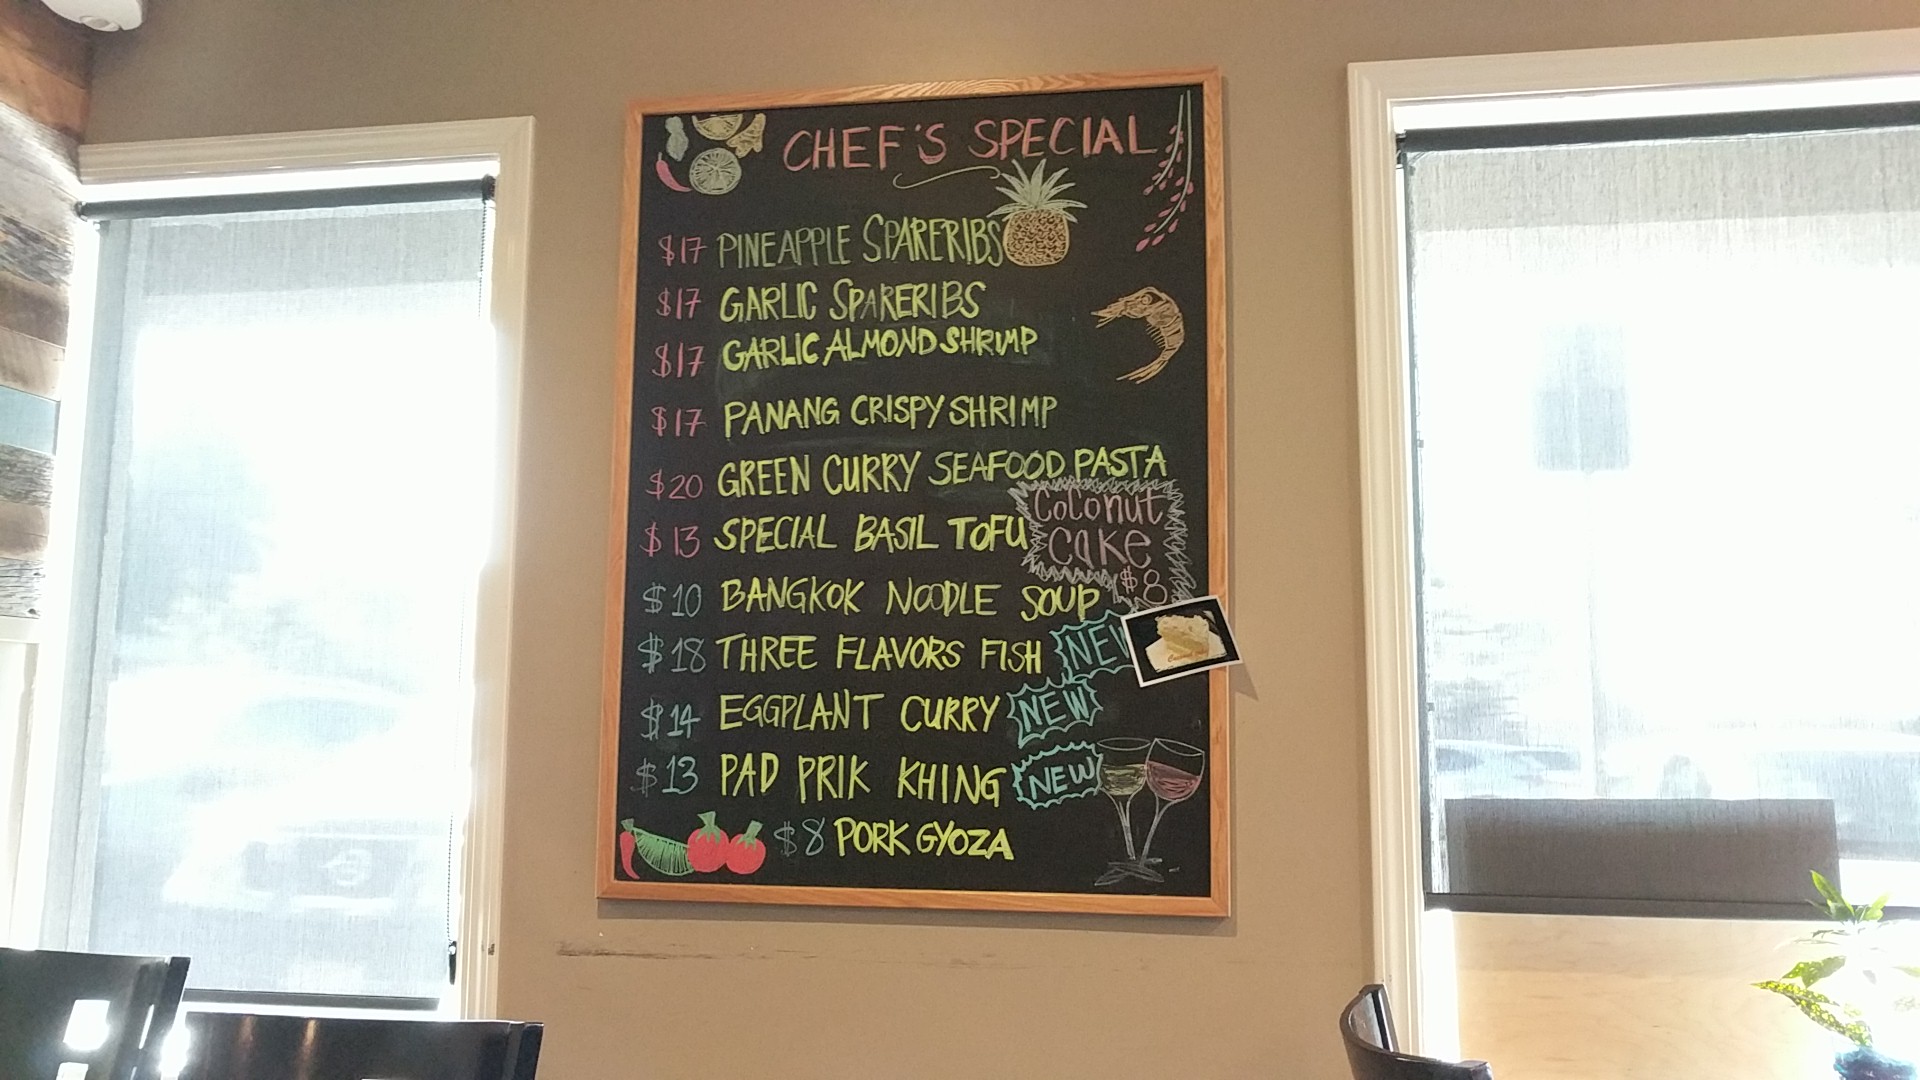 CHEF'S SPECIAL
$17 PINEAPPLE SPARERIBS
$17 GARLIC SPARERIBS
$17 GARLIC ALMOND SHRIMP
$17 PANANG CRISPY SHRIMP
$20 GREEN CURRY SEAFOOD PASTA
$13 SPECIAL BASIL TOFU
Coconut
Cake
$8
$10 BANGKOK NOODLE SOUP
$18 THREE FLAVORS FISH NEW
$14 EGGPLANT CURRY NEW
$13 PAD PRIK KHING NEW
$8 PORK GYOZA